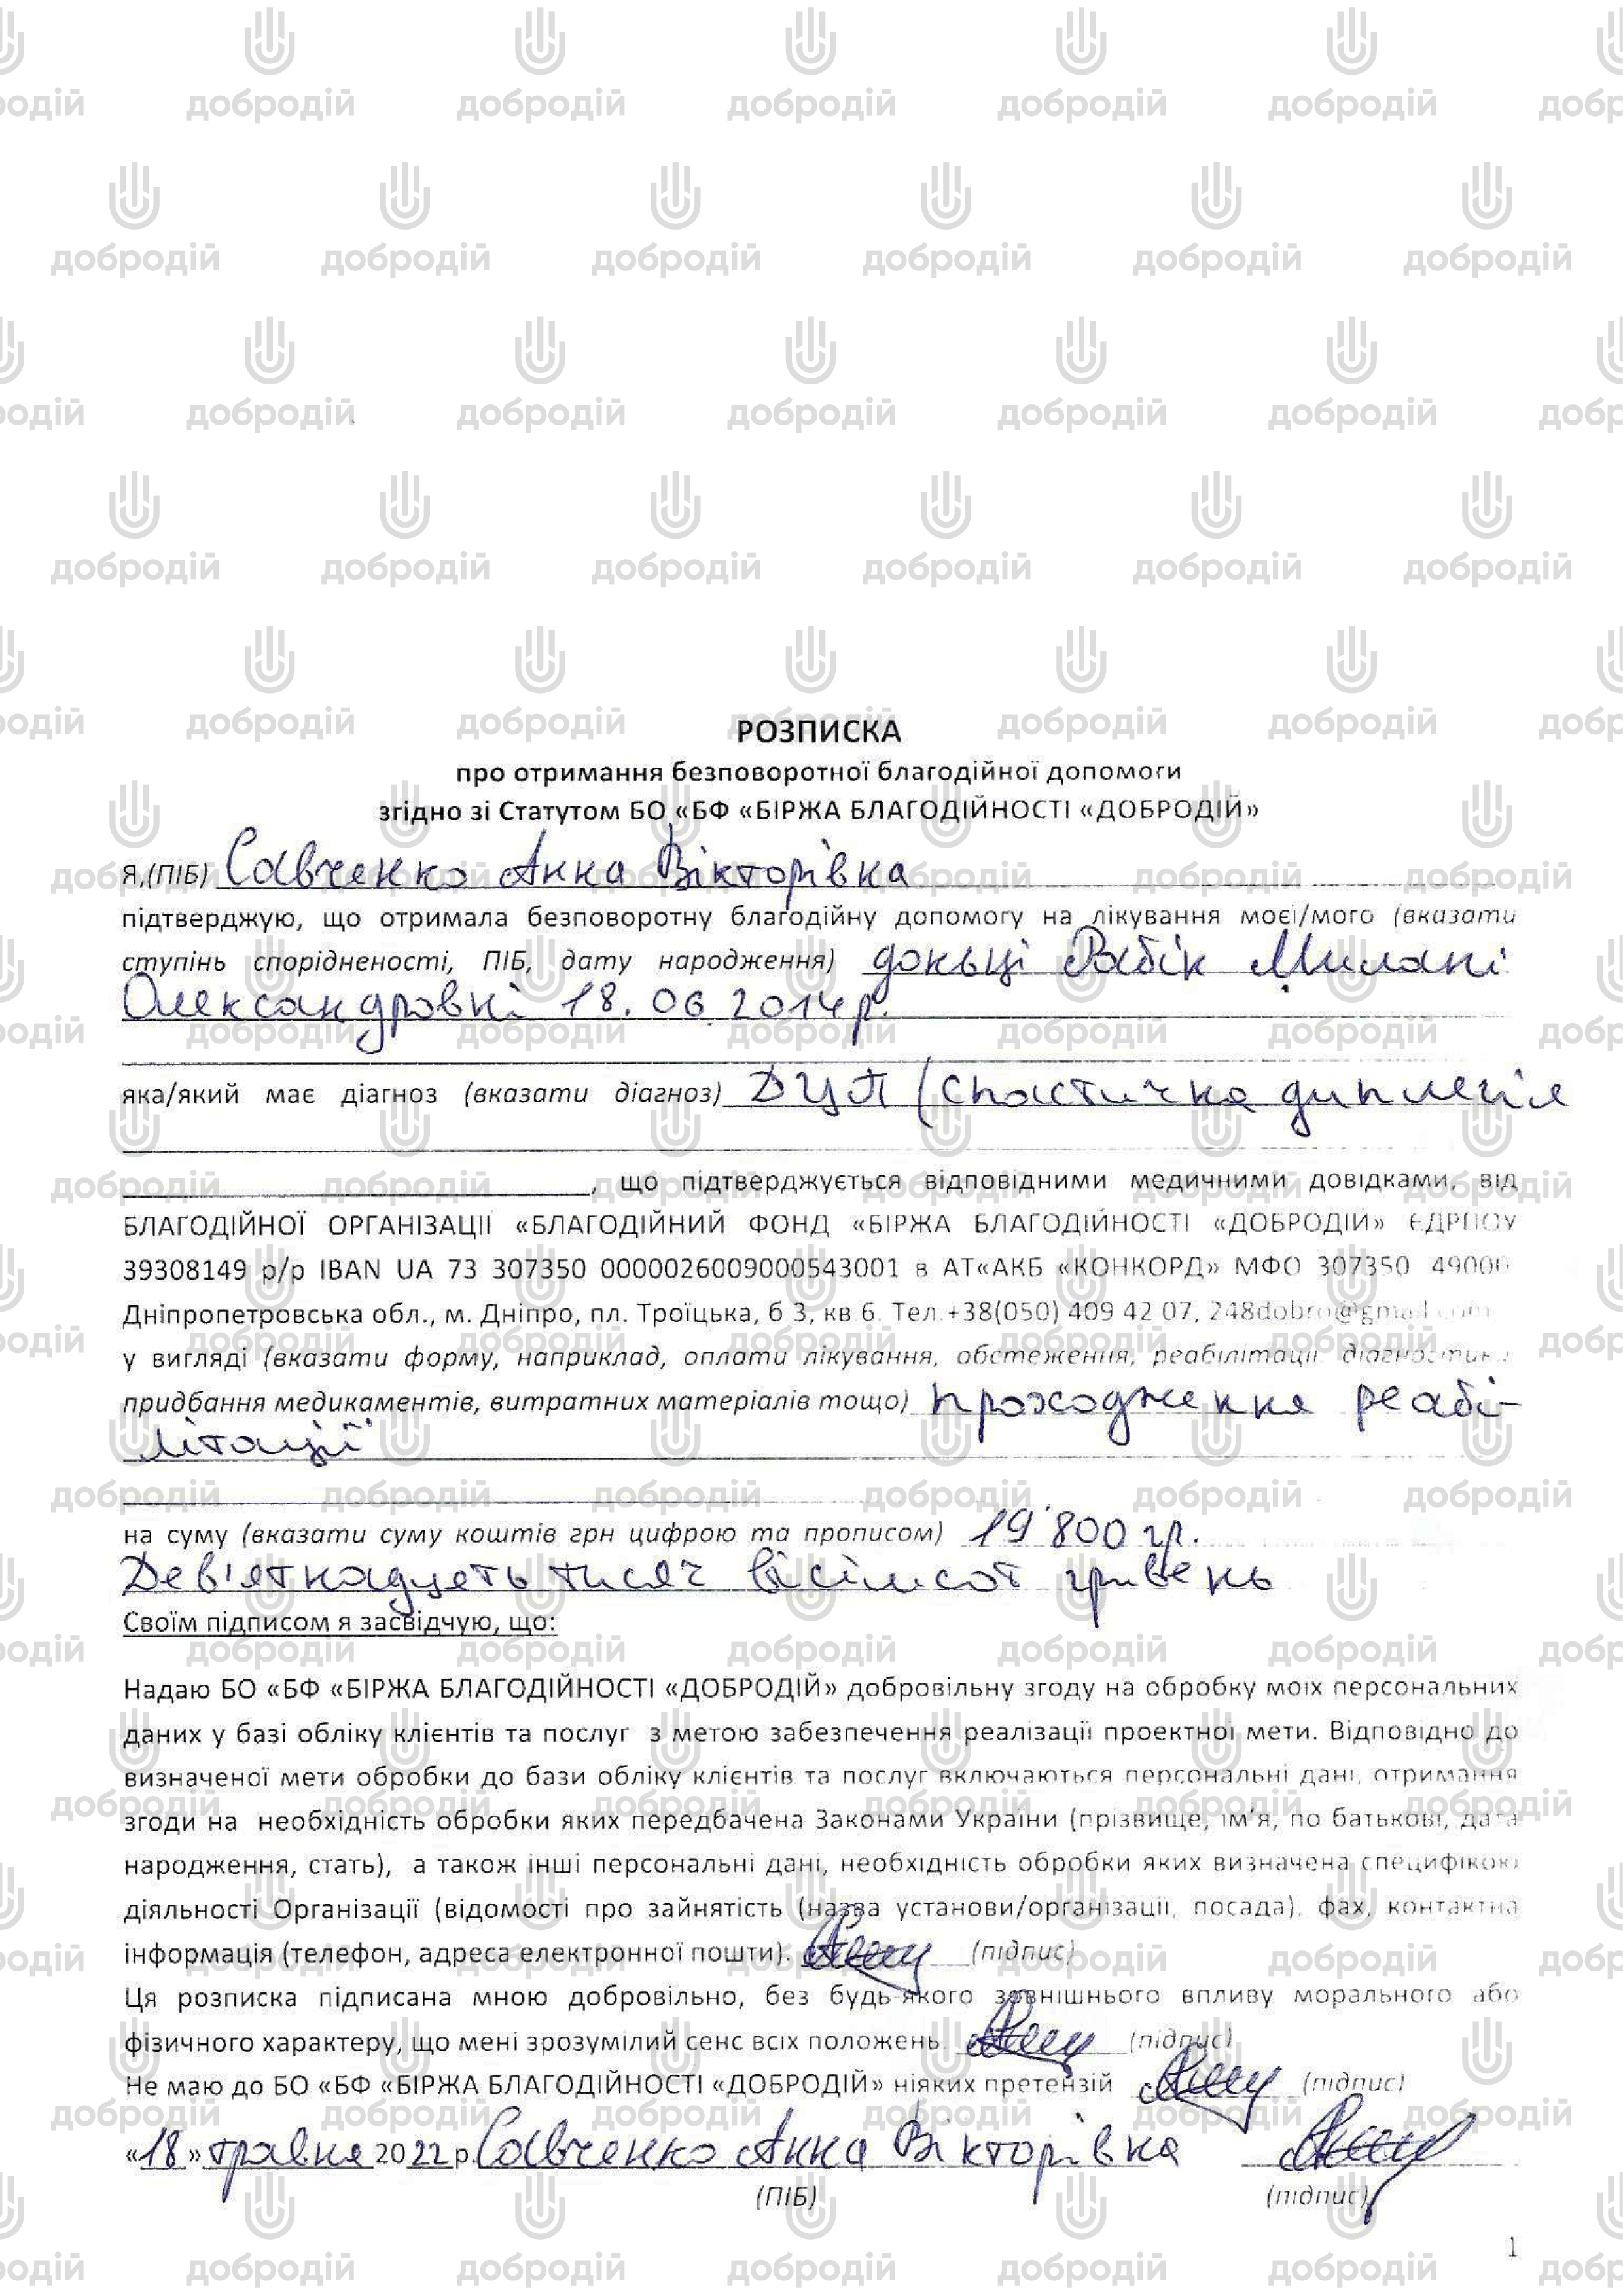 РОЗПИСКА
про отримання безповоротної благодійної допомоги
згідно зі Статутом БО «БФ «БІРЖА БЛАГОДІЙНОСТІ «ДОБРОДІЙ»
Я,(ПІБ) Савченко Анна Вікторівна
підтверджую, що отримала безповоротну благодійну допомогу на лікування моєї/мого (вказати
ступінь спорідненості, ПІБ, дату народження) доньці Рабік Милані
Олександровні 18.06.2014р.
яка/який має діагноз (вказати діагноз) ДЦП (спастична диплегія
, що підтверджується відповідними медичними довідками, від
БЛАГОДІЙНОЇ ОРГАНІЗАЦІЇ «БЛАГОДІЙНИЙ ФОНД «БІРЖА БЛАГОДІЙНОСТІ «ДОБРОДІЙ» ЄДРПОУ
39308149 р/р IBAN UA 73 307350 0000026009000543001 в АТ«АКБ «КОНКОРД» МФО 307350 49000
Дніпропетровська обл., м. Дніпро, пл. Троїцька, б 3, кв 6. Тел.+38(050) 409 42 07, 248dobro@gmail.com
у вигляді (вказати форму, наприклад, оплати лікування, обстеження, реабілітації, діагностики,
придбання медикаментів, витратних матеріалів тощо) проходження реабі-
літації
на суму (вказати суму коштів грн цифрою та прописом) 19'800 гр.
Дев'ятнадцять тисяч вісімсот гривень
Своїм підписом я засвідчую, що:
Надаю БО «БФ «БІРЖА БЛАГОДІЙНОСТІ «ДОБРОДІЙ» добровільну згоду на обробку моїх персональних
даних у базі обліку клієнтів та послуг з метою забезпечення реалізації проектної мети. Відповідно до
визначеної мети обробки до бази обліку клієнтів та послуг включаються персональні дані, отримання
згоди на необхідність обробки яких передбачена Законами України (прізвище, ім'я, по батькові, дата
народження, стать), а також інші персональні дані, необхідність обробки яких визначена специфікою
діяльності Організації (відомості про зайнятість (назва установи/організації, посада), фах, контактна
інформація (телефон, адреса електронної пошти). (підпис)
Ця розписка підписана мною добровільно, без будь-якого зовнішнього впливу морального або
фізичного характеру, що мені зрозумілий сенс всіх положень (підпис)
Не маю до БО «БФ «БІРЖА БЛАГОДІЙНОСТІ «ДОБРОДІЙ» ніяких претензій (підпис)
«18» травня 2022 р. Савченко Анна Вікторівна
(ПІБ) (підпис)
1
добродій